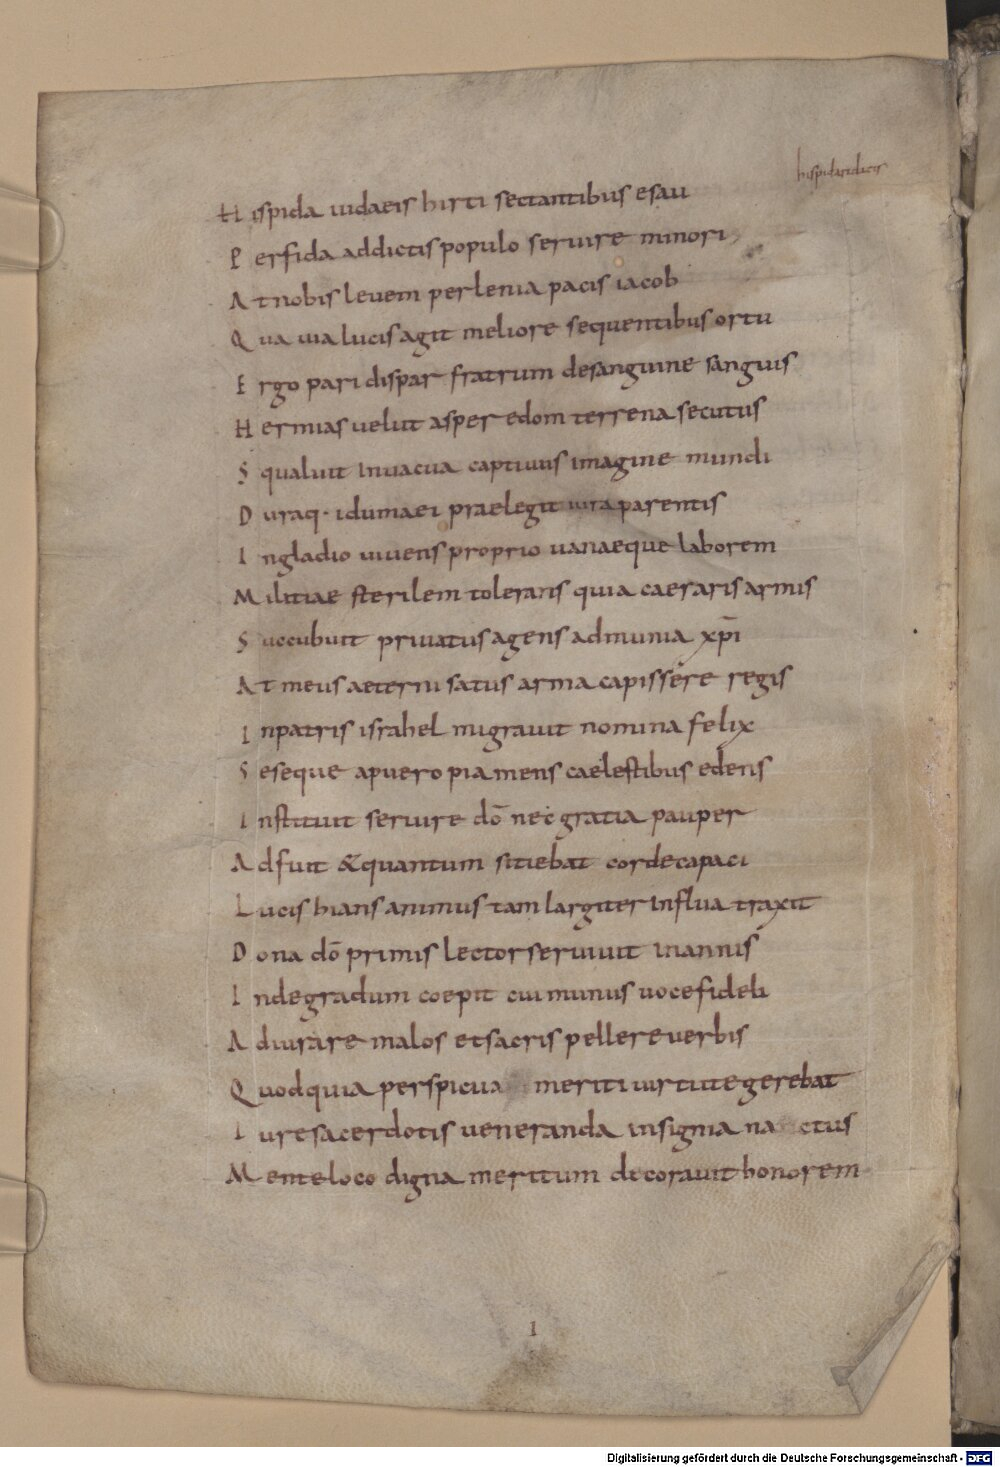 Hispida iudaeis hirti sectantibus esau
Perfida addictis populo seruire minori
At nobis leuem per lenia pacis iacob
Qua uia lucis agit meliore sequentibus ortu
Ergo pari dispar fratrum desanguine sanguis
Hermias uelut asper edom terrena secutus
Squaluit inuacua captiuus imagine mundi
Duraq· idumaei praelegit iura parentis
Ingladio uiuens proprio uanaeque laborem
Militiae sterilem tolerans quia caesaris armis
Succubuit priuatus agens admunia xp̄i
At meus aeterni satus arma capissere regis
Inpatris israhel migrauit nomina felix
Seseque apuero piamens caelestibus edens
Instituit seruire dō nec gratia pauper
Adfuit &quantum sitiebat corde capaci
Lucis hians animus tam largiter influa traxit
Dona dō primis lector seruiuit inannis
Indegradum coepit cui munus uoce fideli
Adiurare malos et sacris pellere uerbis
Quodquia perspicua meriti uirtute gerebat
Iure sacerdotis ueneranda insignia na ctus
Mente loco digna meritum decorauit honorem
I
Digitalisierung gefördert durch die Deutsche Forschungsgemeinschaft - DFG